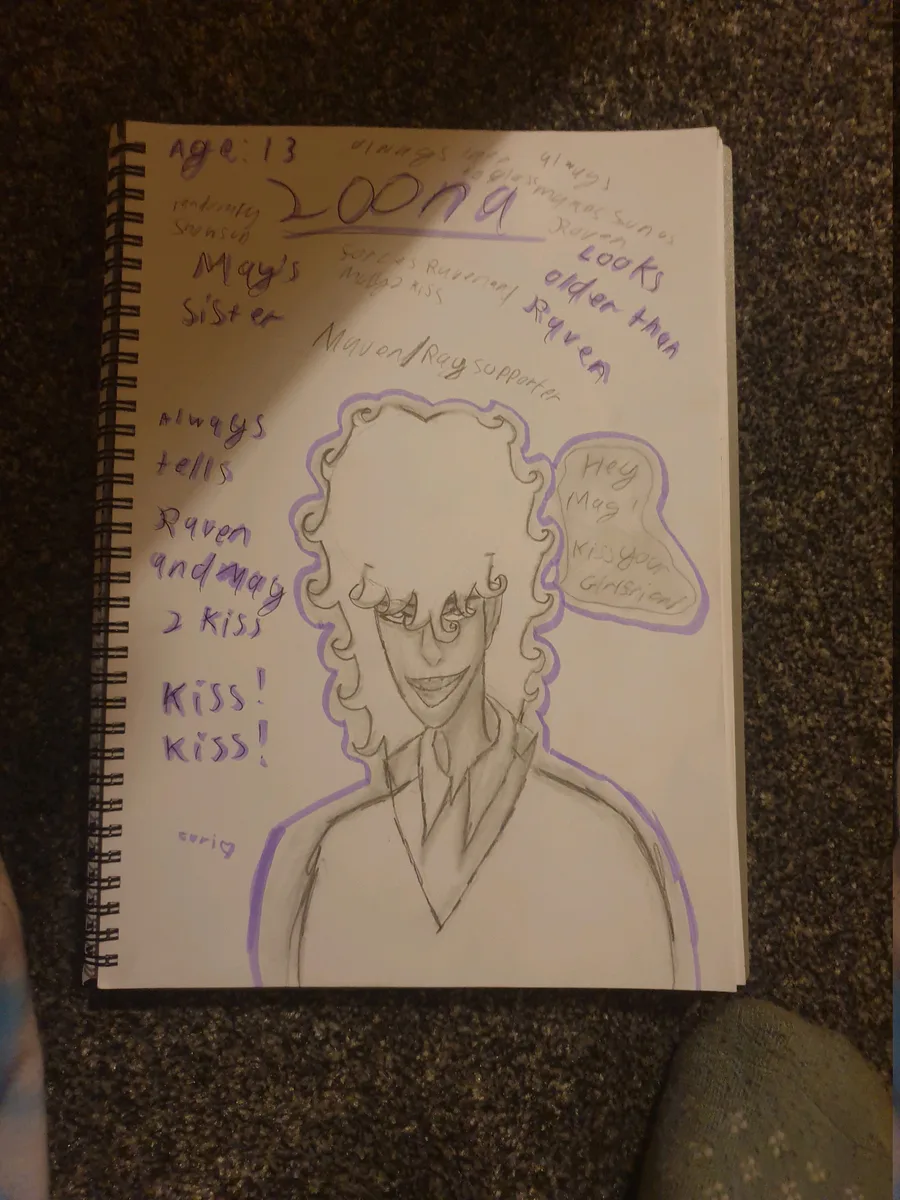 Age: 13
always
always
Loona
makes fun of
Raven
randomly
May's
sister
Forces Raven and
May 2 kiss
Looks
older than
Raven
Maven/Ray supporter
Always
tells
Raven
and May
2 kiss
Kiss!
Kiss!
Hey
May!
Kiss your
Girlfriend